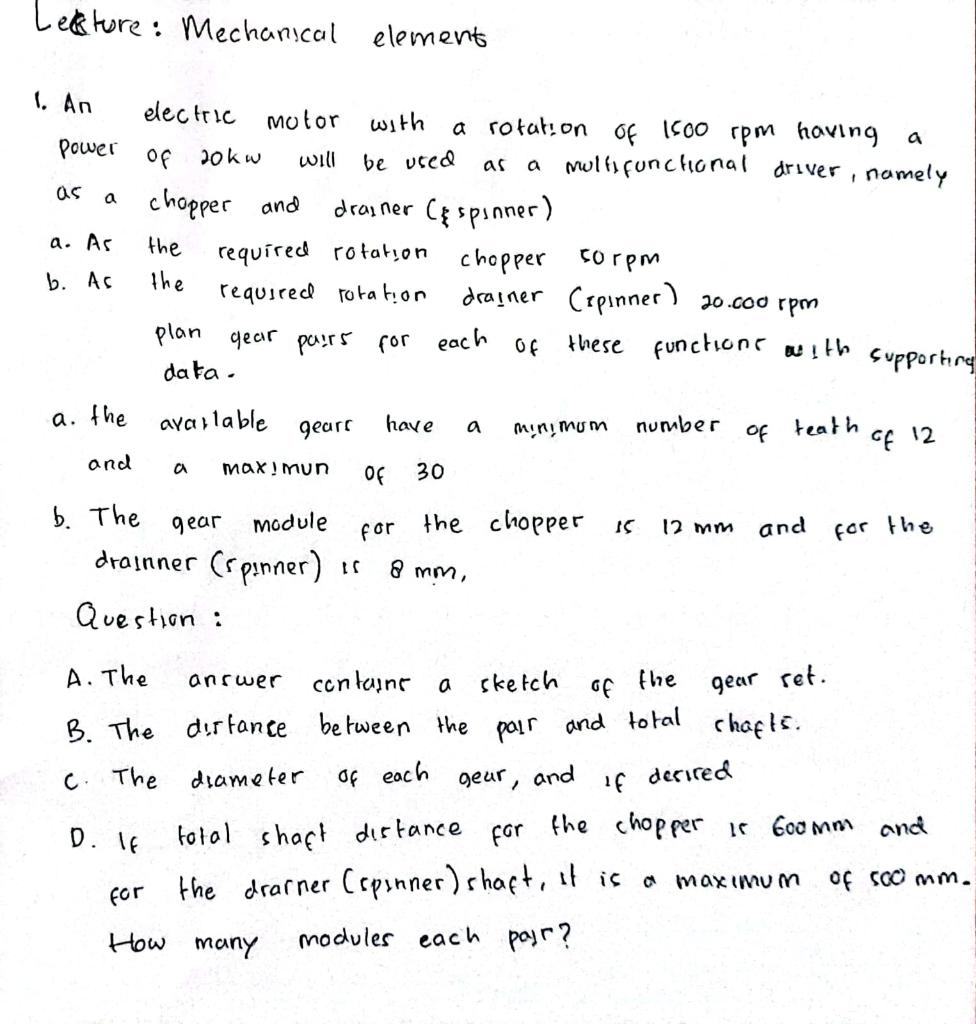 Lecture : Mechanical elements
1. An electric motor with a rotation of 1500 rpm having a
power of 20kw will be used as a multifunctional driver, namely
as a chopper and drainer (& spinner)
a. As the required rotation chopper 50rpm
b. As the required rotation drainer (spinner) 20.000 rpm
plan gear pairs for each of these functions with supporting
data.
a. the available gears have a minimum number of teath of 12
and a maximun of 30
b. The gear module for the chopper is 12 mm and for the
drainner (spinner) is 8 mm,
Question :
A. The answer contains a sketch of the gear set.
B. The distance between the pair and total shafts.
C. The diameter of each gear, and if desired
D. If total shaft distance for the chopper is 600mm and
for the drarner (spinner) shaft, it is a maximum of 500 mm.
How many modules each pair?